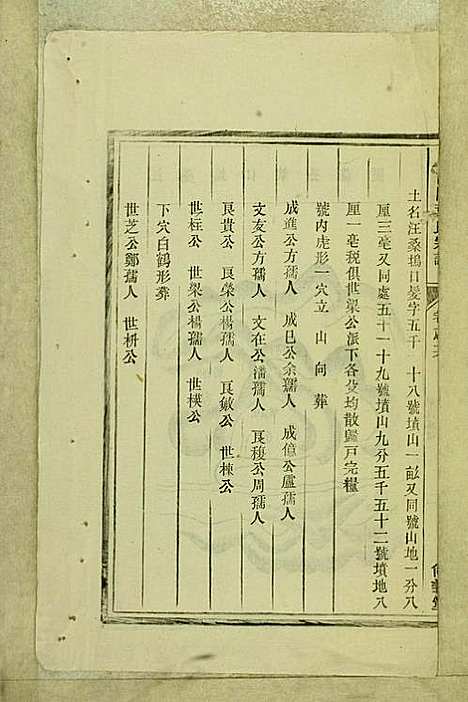 土名汪桑塢口髮字五千 十八號墳山一畝又同號山地一分八
厘三毫又同處五十一十九號墳山九分五千五十二號墳地八
厘一毫税俱世梁公派下各分均散歸戸完糧
號内虎形一穴立 山 向 葬
成進公方孺人 成巳公余孺人 成億公盧孺人
文友公方孺人 文在公潘孺人 良稷公周孺人
良貴公 良榮公楊孺人 良敏公 世棟公
世柱公 世梁公楊孺人 世模公
下穴白鶴形葬
世芝公鄭孺人 世枏公